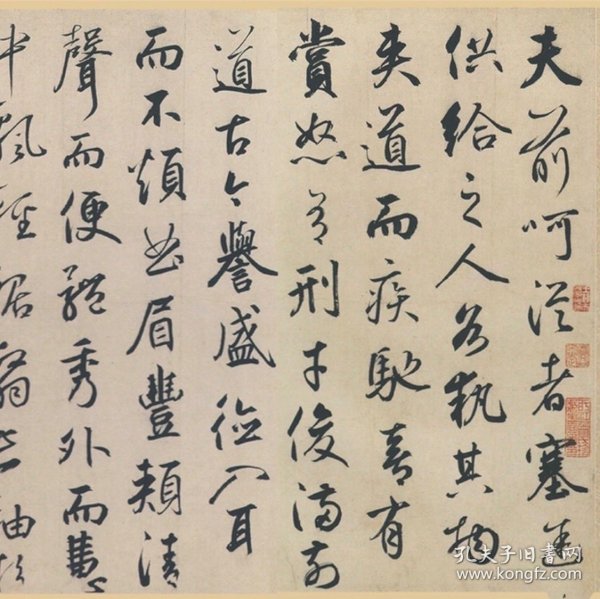 夫前呵從者塞途
供給之人各執其物
夾道而疾馳喜有
賞怒有刑才俊滿前
道古今譽盛德入耳
而不煩曲眉豐頰清
聲而便體秀外而慧
中飄輕裾翳長袖粉
孔夫子旧书网
www.kongfz.com